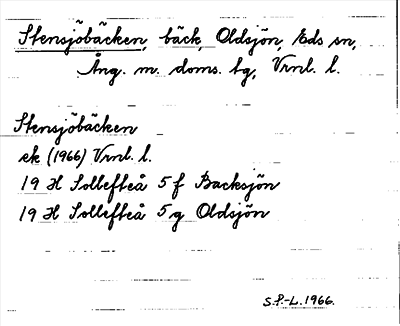 Stensjöbäcken, bäck, Oldsjön, Eds sn,
Ång. m. doms. tg, Vrnl. l.
Stensjöbäcken
ek (1966) Vrnl. l.
19 H Sollefteå 5 f Backsjön
19 H Sollefteå 5 g Oldsjön
S.P.-L. 1966.